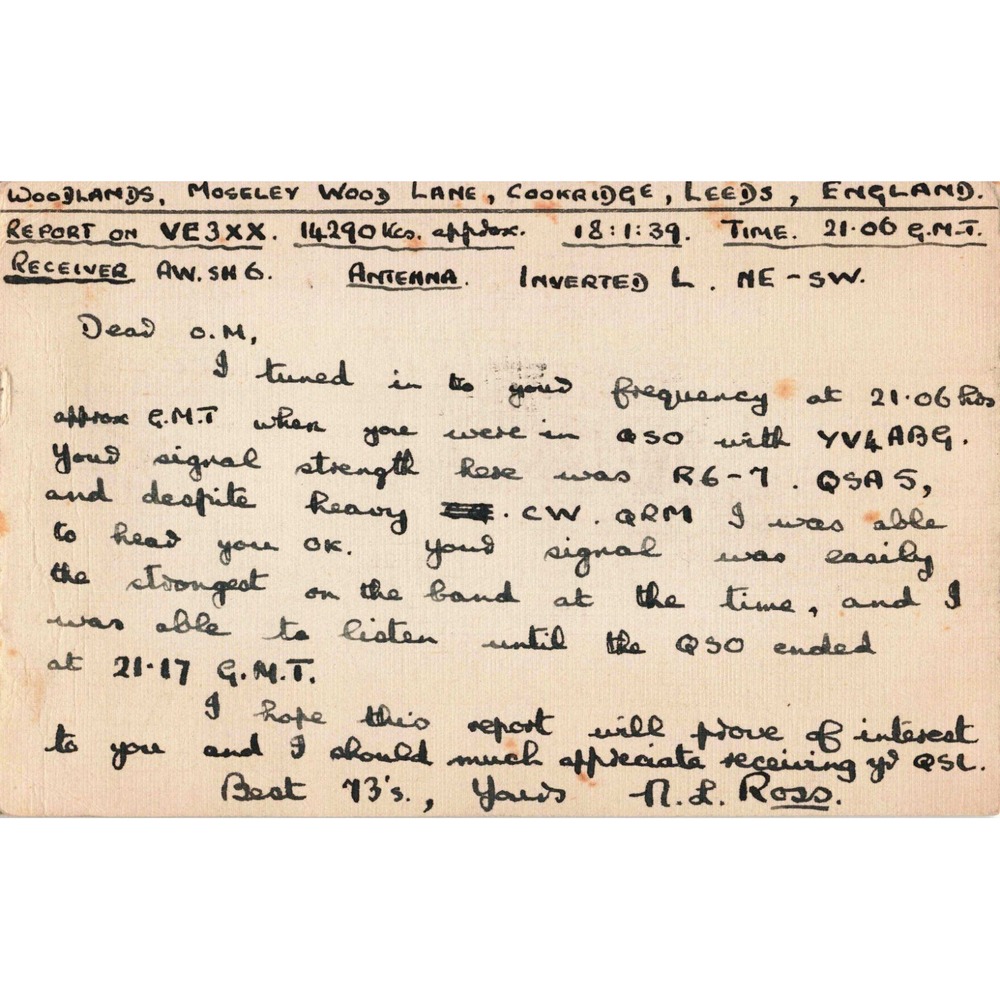 WOODLANDS, MOSELEY WOOD LANE, COOKRIDGE, LEEDS, ENGLAND.
REPORT ON VE3XX. 14290 Kcs. approx. 18:1:39. TIME. 21·06 G.M.T.
RECEIVER AW. SH 6. ANTENNA. INVERTED L. NE - SW.
Dear O.M,
I tuned in to your frequency at 21·06 hrs
approx G.M.T when you were in QSO with YV4ABG.
Your signal strength here was R6-7. QSA5,
and despite heavy . CW. QRM I was able
to hear you OK. Your signal was easily
the strongest on the band at the time, and I
was able to listen until the QSO ended
at 21·17 G.M.T.
I hope this report will prove of interest
to you and I should much appreciate receiving yr QSL.
Best 73's., Yours N. L. Ross.